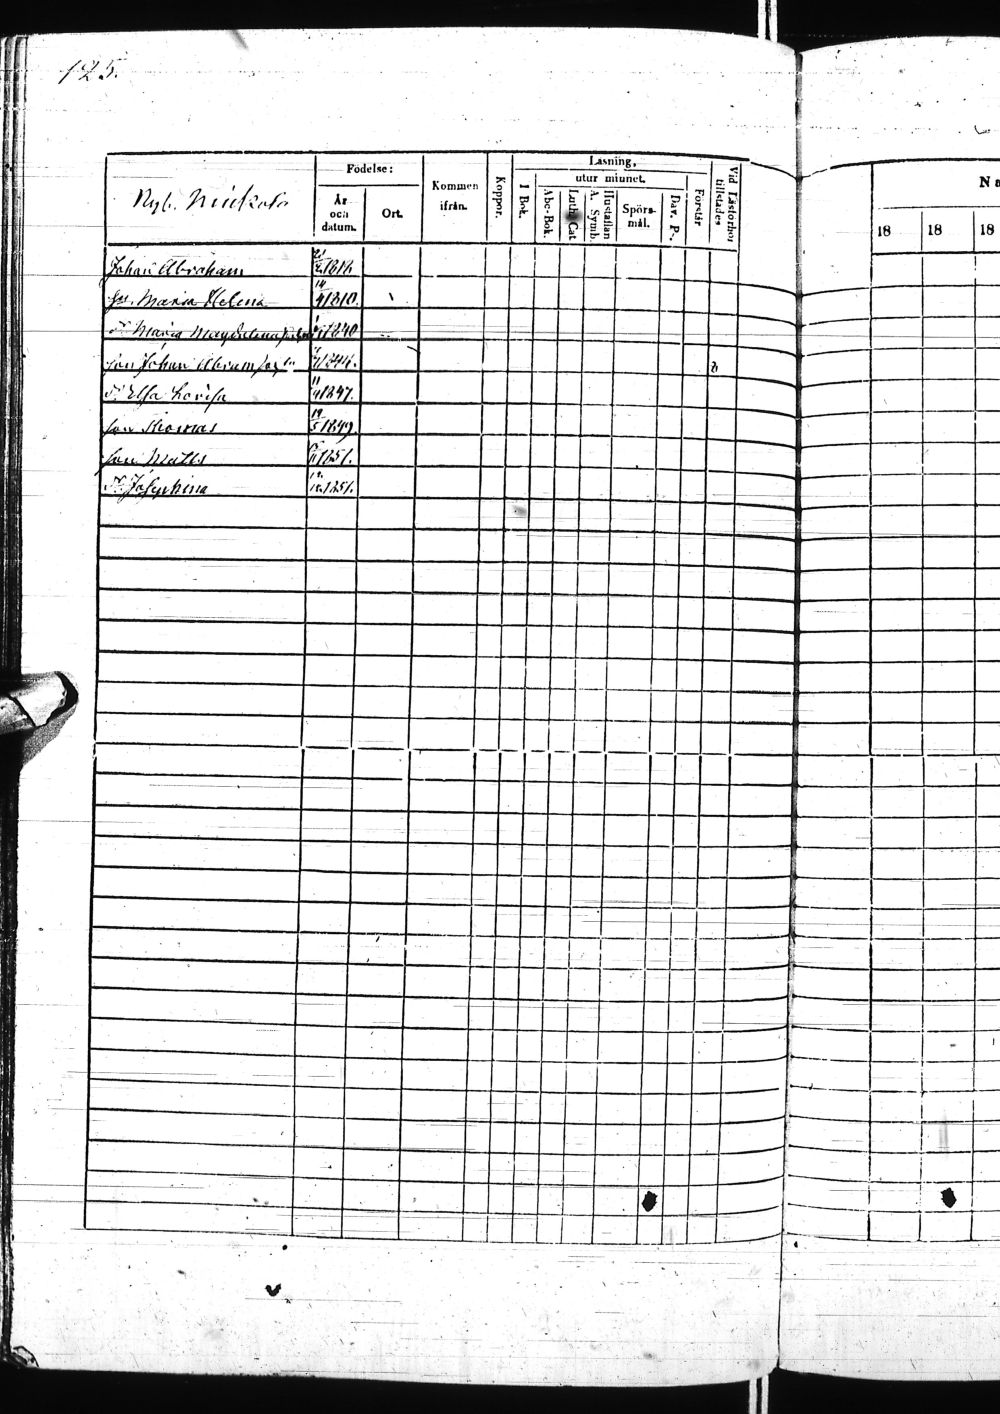 125.
Födelse:
Kommen ifrån.
Koppor.
Läsning,
utur minnet.
Förstår
Vid Läsförhör tillstädes
År och datum.
Ort.
1 Bok.
Abc-Bok.
Luth. Cat
Hustaflan A. Symb.
Spörs-mål.
Dav. Ps.
Nyb. Niikola
Johan Abraham 1818
hu. Maria Helena 14/4 1810.
Dr Maria Magdalena 1840
son Johan Abram 1844.
Dr Elsa Lovisa 11/4 1847.
son Thomas 19/5 1849.
son Matts 1851.
Dr Josephina 1851.
Na
18 18 18